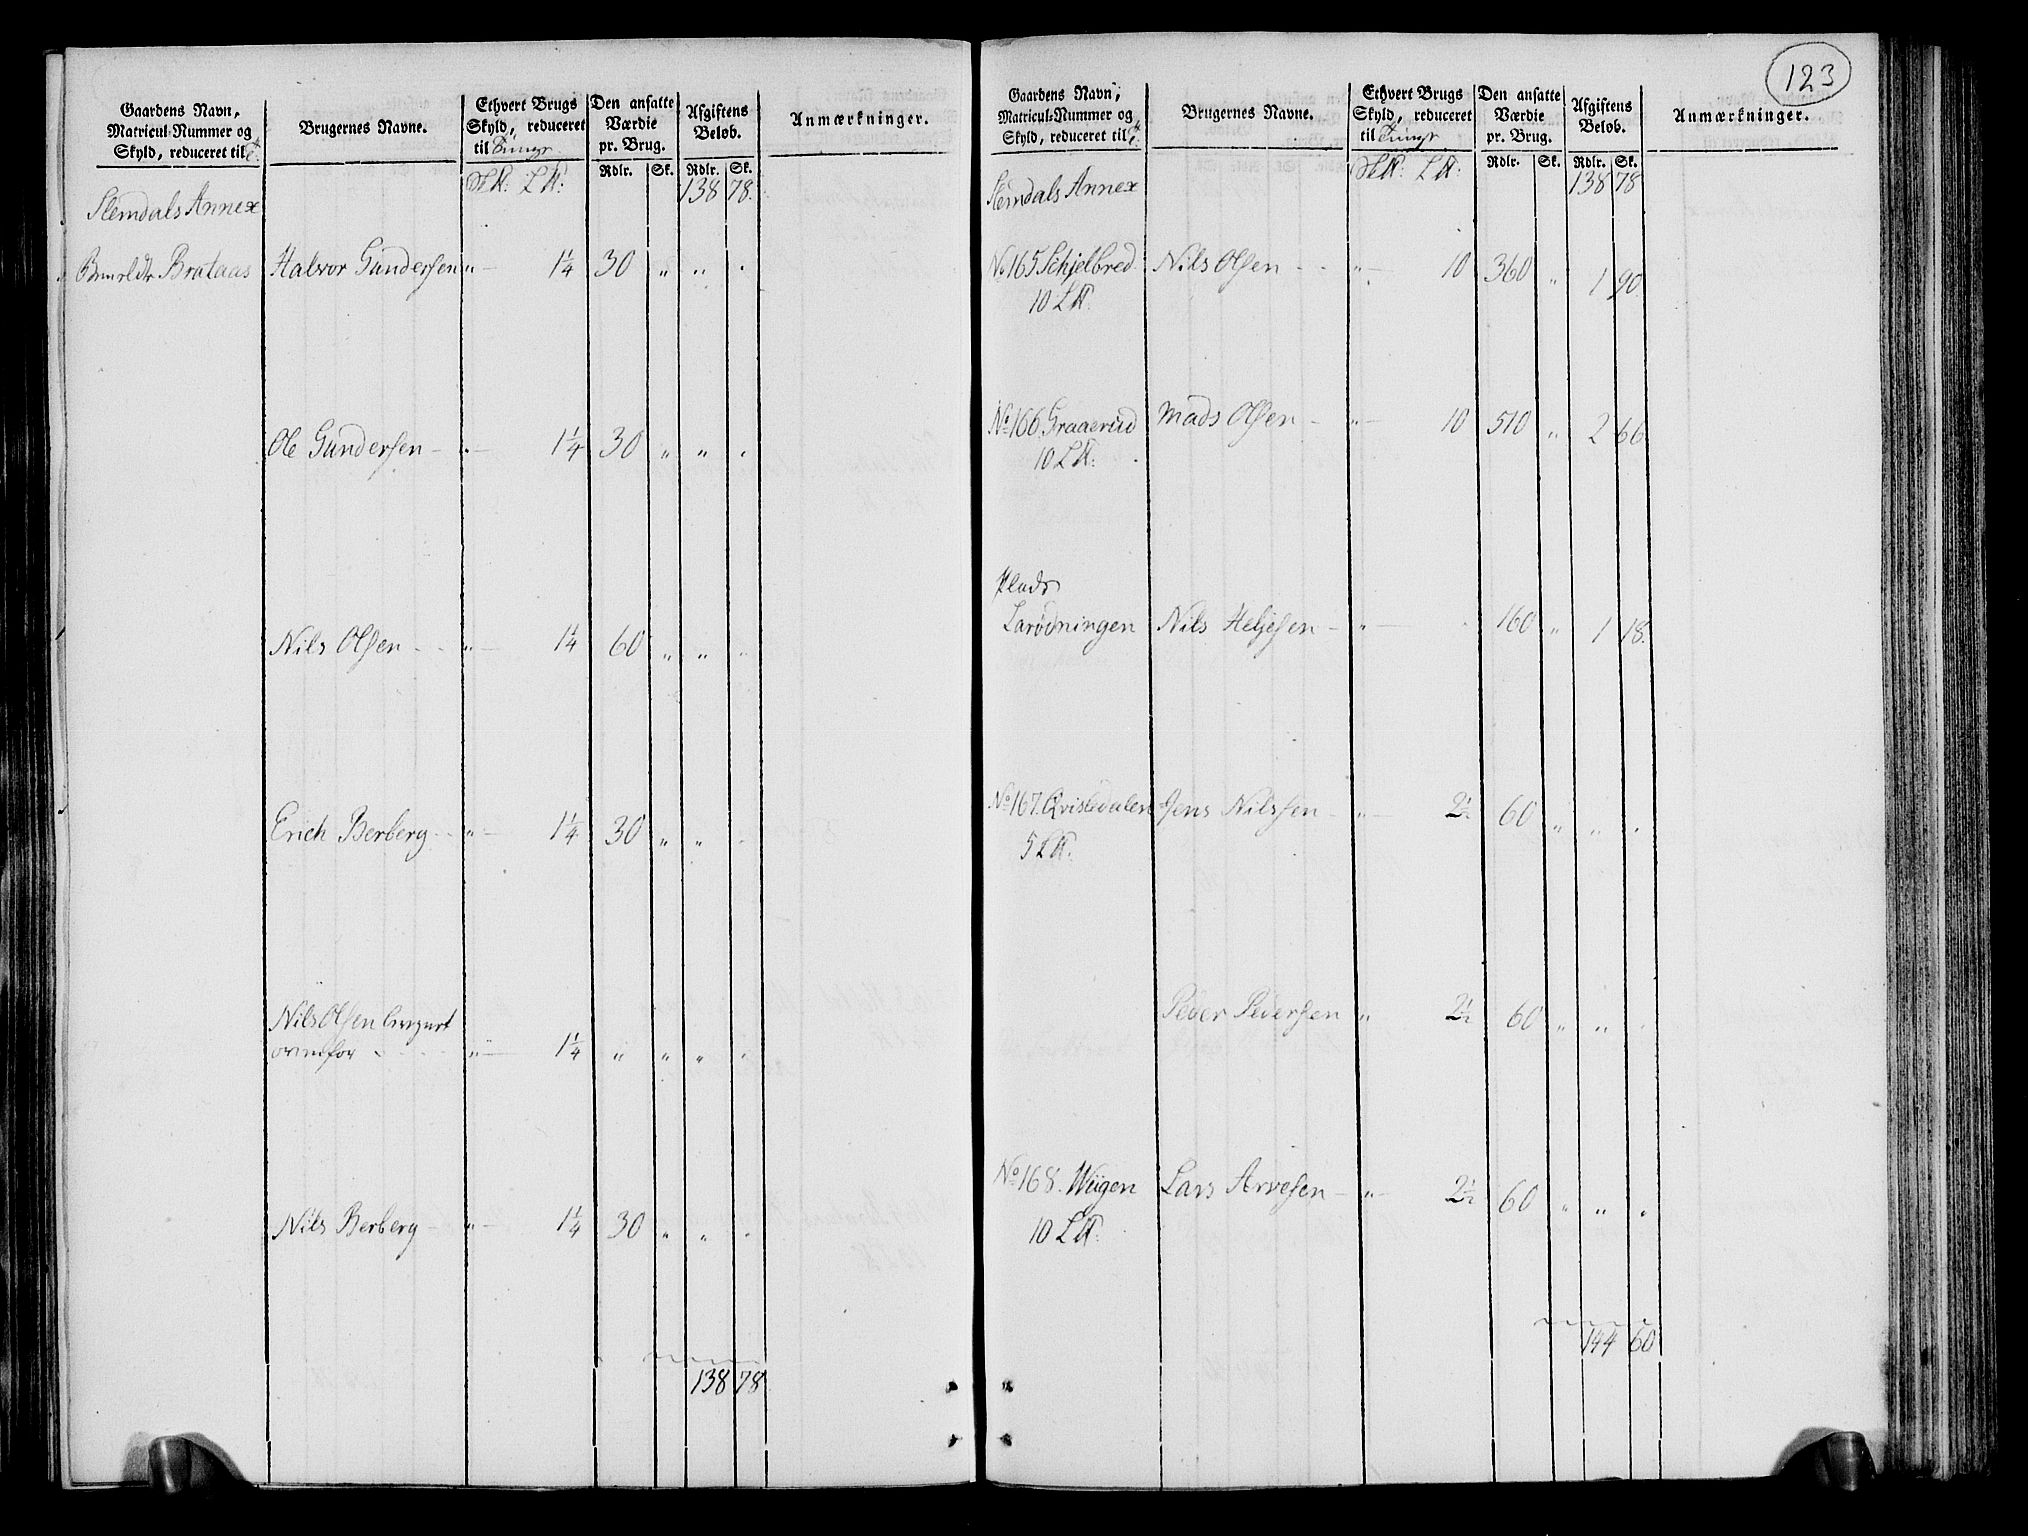 Gaardens Navn, Matricul-Nummer og Skyld, reduceret til
Brugernes Navne.
Ethvert Brugs Skyld, reduceret til
Den ansatte Værdie pr. Brug.
Afgiftens Beløb.
Anmærkninger.
Rdlr. Sk. Rdlr. Sk.
Slemdals Annex 138 78.
Brataas Halvor Gundersen " 1 1/4 30 " " "
Ole Gundersen " 1 1/4 30 " " "
Nils Olsen " 1 1/4 60 " " "
Erich Berberg " 1 1/4 30 " " "
Nils Olsen
" 1 1/4 " " " "
Nils Berberg " 1 1/4 30 " " "
138 78
123
Gaardens Navn, Matricul-Nummer og Skyld, reduceret til
Brugernes Navne.
Ethvert Brugs Skyld, reduceret til
Den ansatte Værdie pr. Brug.
Afgiftens Beløb.
Anmærkninger.
Rdlr. Sk. Rdlr. Sk.
Slemdals Annex 138 78
No 165 Schjelbred Nils Olsen " 10 360 " 1 90.
10 L℔.
No 166 Graaerud Mads Olsen " 10 510 " 2 66
10 L℔:
Plads
Larødningen Nils Heljesen " 160 " 1 18.
No 167. Qvisledalen Jens Nilssen " 2 1/2 60 " " "
5 L℔.
Peder Pedersen " 2 1/2 60 " " "
No 168. Wiigen Lars Arvesen " 2 1/2 60 " " "
10 L℔:
144 60